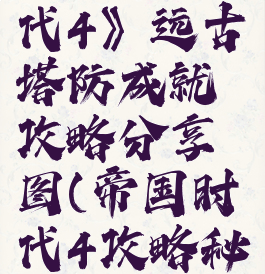 代4》远古
塔防成就
攻略分享
图(帝国时
代4攻略秘